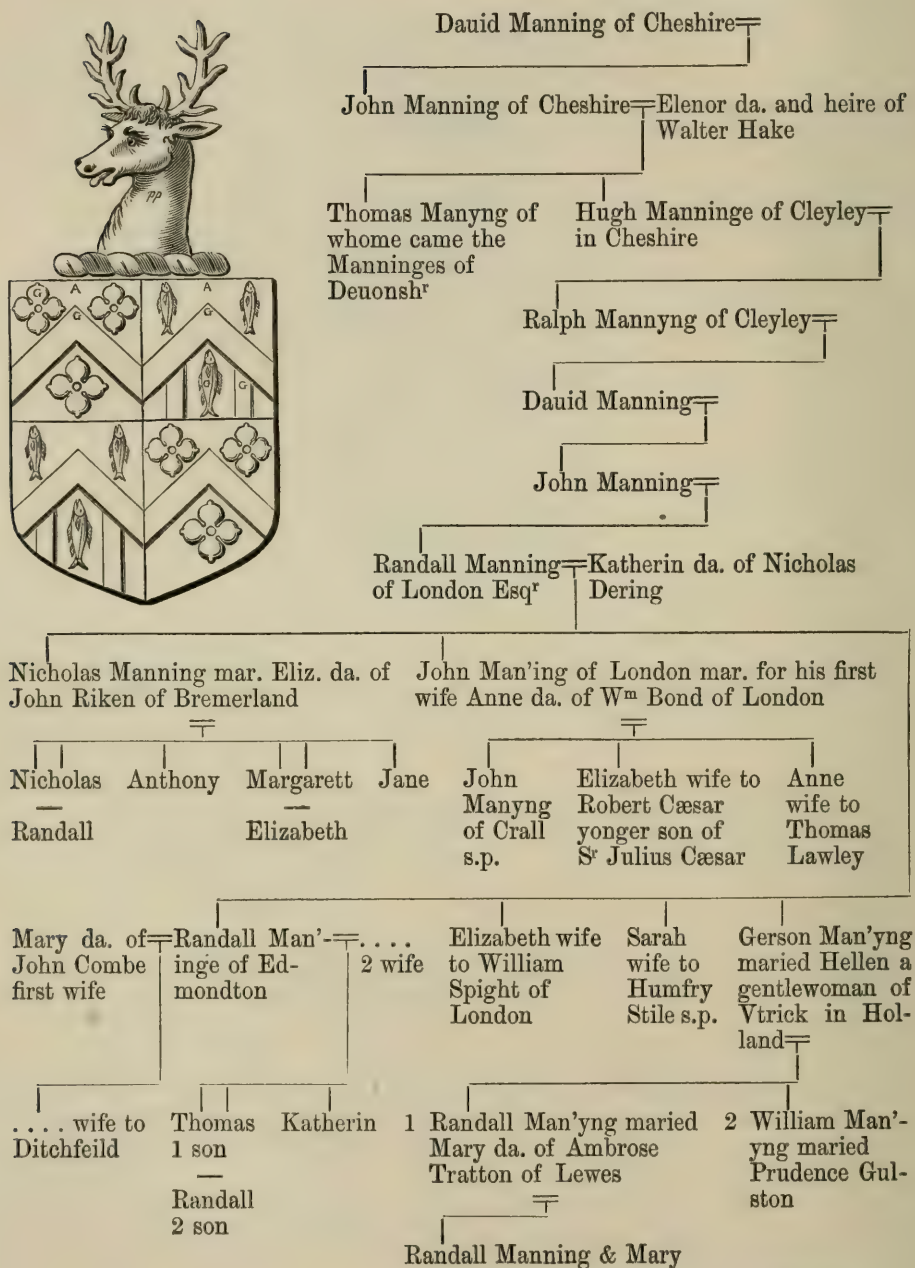 Dauid Manning of Cheshire
John Manning of Cheshire
Elenor da. and heire of
Walter Hake
Thomas Manyng of
whome came the
Manninges of
Deuonshʳ
Hugh Manninge of Cleyley
in Cheshire
PP
G A G
A G
G G
Ralph Mannyng of Cleyley
Dauid Manning
John Manning
Randall Manning
of London Esqʳ
Katherin da. of Nicholas
Dering
Nicholas Manning mar. Eliz. da. of
John Riken of Bremerland
John Man'ing of London mar. for his first
wife Anne da. of Wᵐ Bond of London
Nicholas
—
Randall
Anthony
Margarett
—
Elizabeth
Jane
John
Manyng
of Crall
s.p.
Elizabeth wife to
Robert Cæsar
yonger son of
Sʳ Julius Cæsar
Anne
wife to
Thomas
Lawley
Mary da. of
John Combe
first wife
Randall Man'-
inge of Ed-
mondton
. . . .
2 wife
Elizabeth wife
to William
Spight of
London
Sarah
wife to
Humfry
Stile s.p.
Gerson Man'yng
maried Hellen a
gentlewoman of
Vtrick in Hol-
land
. . . . wife to
Ditchfeild
Thomas
1 son
—
Randall
2 son
Katherin
1 Randall Man'yng maried
Mary da. of Ambrose
Tratton of Lewes
2 William Man'-
yng maried
Prudence Gul-
ston
Randall Manning & Mary